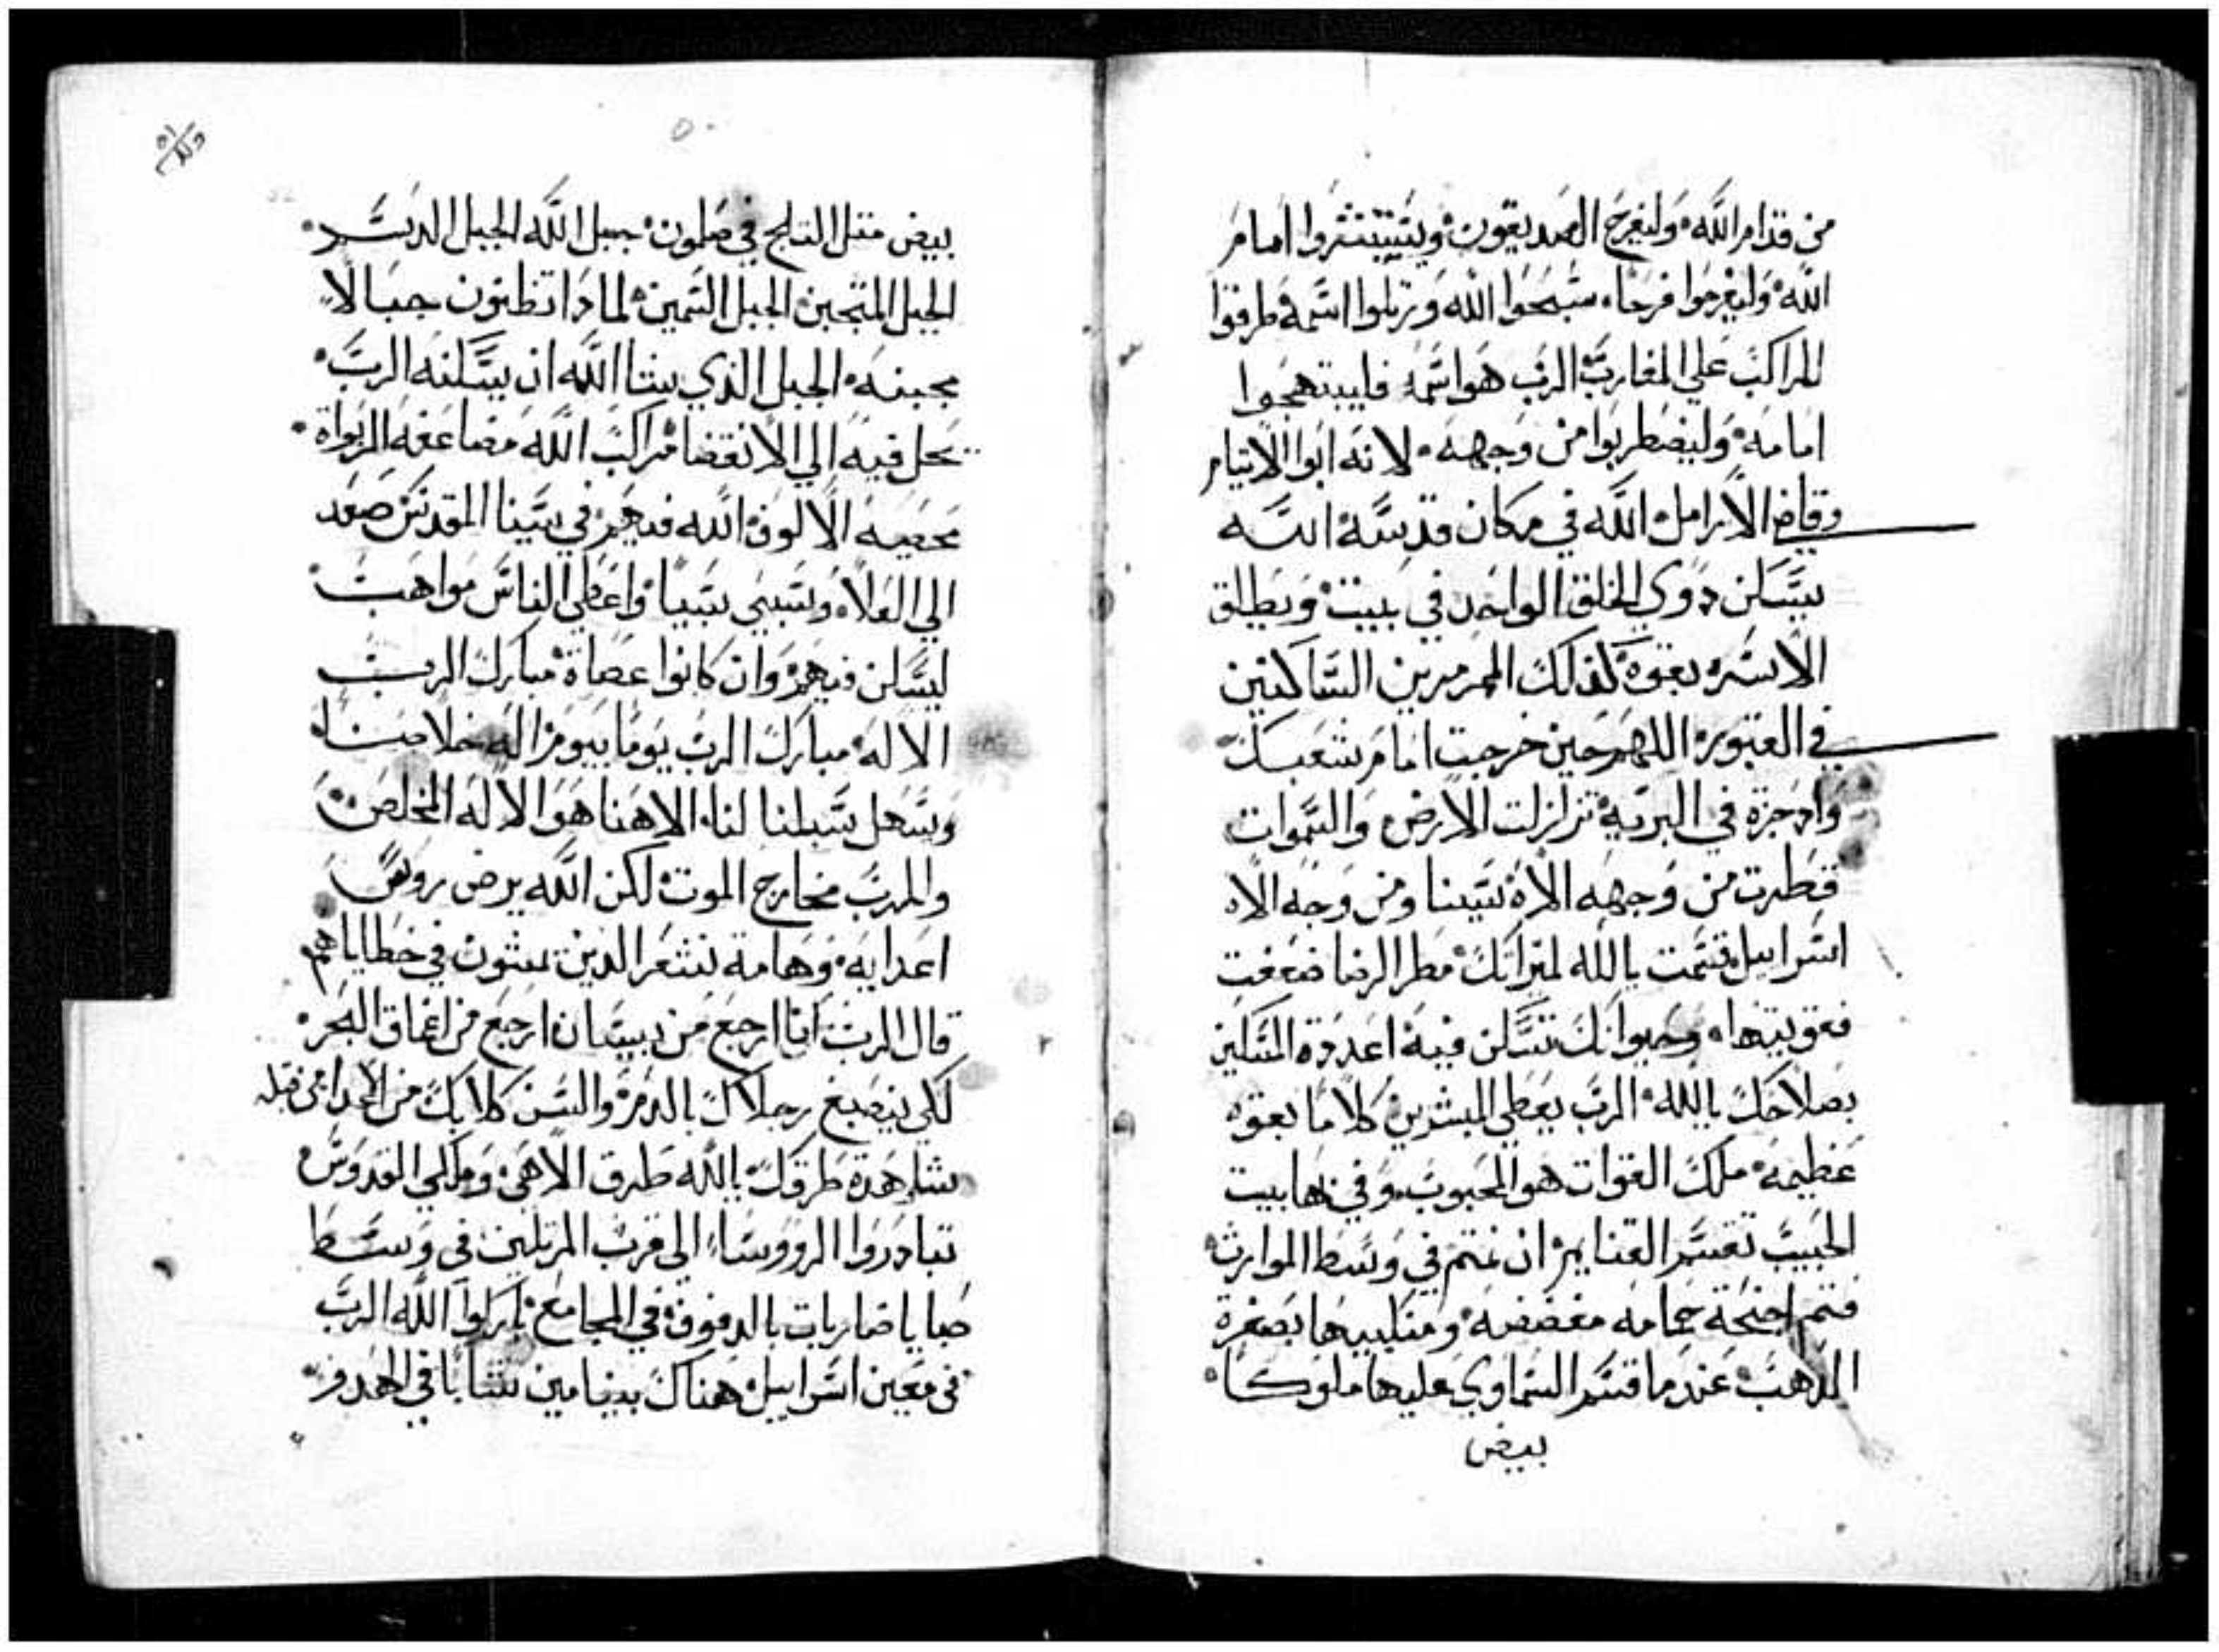 من قدام الله وليفرح الصديقون ويتبشروا امام
الله وليفرحوا فرحا سبحوا الله ورتلوا اسمه طرقوا
للراكب علي المغارب الرب هو اسمه فليبتهجوا
امامه وليضطربوا من وجهه لانه ابوا الايتام
وقاض الارامل الله في مكان قدسه الله
يسكن ذوي الخلق الواحد في بيت ويطلق
الاسره بقوه كذلك المرمرين الساكنين
في القبور اللهم حين خرجت امام شعبك
وادجزة في البريه تزلزلت الارض والسموات
قطرت من وجهه الاه سينا ومن وجه الاه
اسراييل قسمت يالله لميراتك مطر الرضا ضعفت
فقويتها وحيواتك تسكن فيه اعددة المسكين
بصلاحك يالله الرب يعطي المبشرين كلاما بقوه
عظيمه ملك القوات هو المحبوب وفي بها بيت
الحبيب تقسم الغنايم ان نمتم في وسط الموارث
فتم اجنحة حمامه مفضضه ومنكبيها بصفرة
الذهب عند ما قسم السماوي عليها ملوكا
بيض
٥٠
بيض متل التلج في صلمون جبل الله الجبل الدسم
الجبل المتجبن الجبل السمين لماذا تظنون جبالا
مجبنه الجبل الذي يشا الله ان يسكنه الرب
يحل فيه الي الانقضا مراكب الله مضاعفه الربواة
مخصبه الالوف الله فيهم في سينا المقدس صعد
الي العلاء وسبي سبيا واعطي الناس مواهب
ليسكن فيهم وان كانوا عصاة مبارك الرب
الاله مبارك الرب يوما بيوم اله خلاصنا
ويسهل سبلنا لنا الاهنا هو الاله المخلص
والرب مخارج الموت لكن الله يرض روس
اعدايه وهامة شعر الذين يمشون في خطاياهم
قال الرب انا ارجع من بيسان ارجع من اعماق البحر
لكي ينصبغ رجلاك بالدم والسن كلابك من الاعدا من قبله
شاهدة طرقك يالله طرق الاهي وملكي القدوس
تبادروا الرووساء الى قرب المرتلين في وسط
صبايا ضاربات بالدفوف في المجامع باركوا الله الرب
من معين اسراييل هناك بنيامين شابا في الهدو